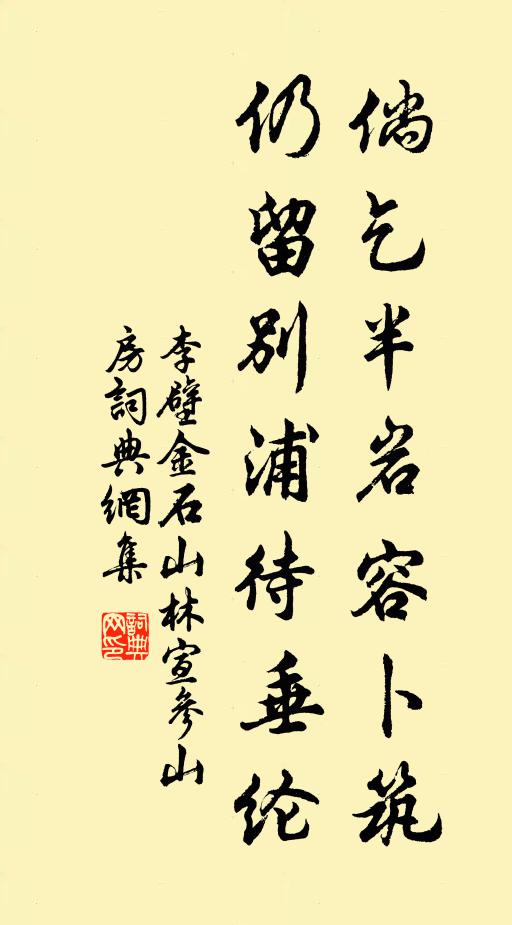 倘乞半岩容卜筑
仍留别浦待垂纶
李壁金石山林宣参山
房詞典網集
詞典
网印